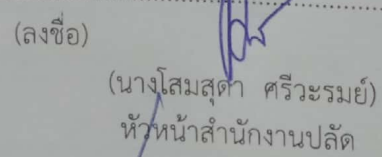 (ลงชื่อ)
(นางโสมสุดา ศรีวะรมย์)
หัวหน้าสำนักงานปลัด